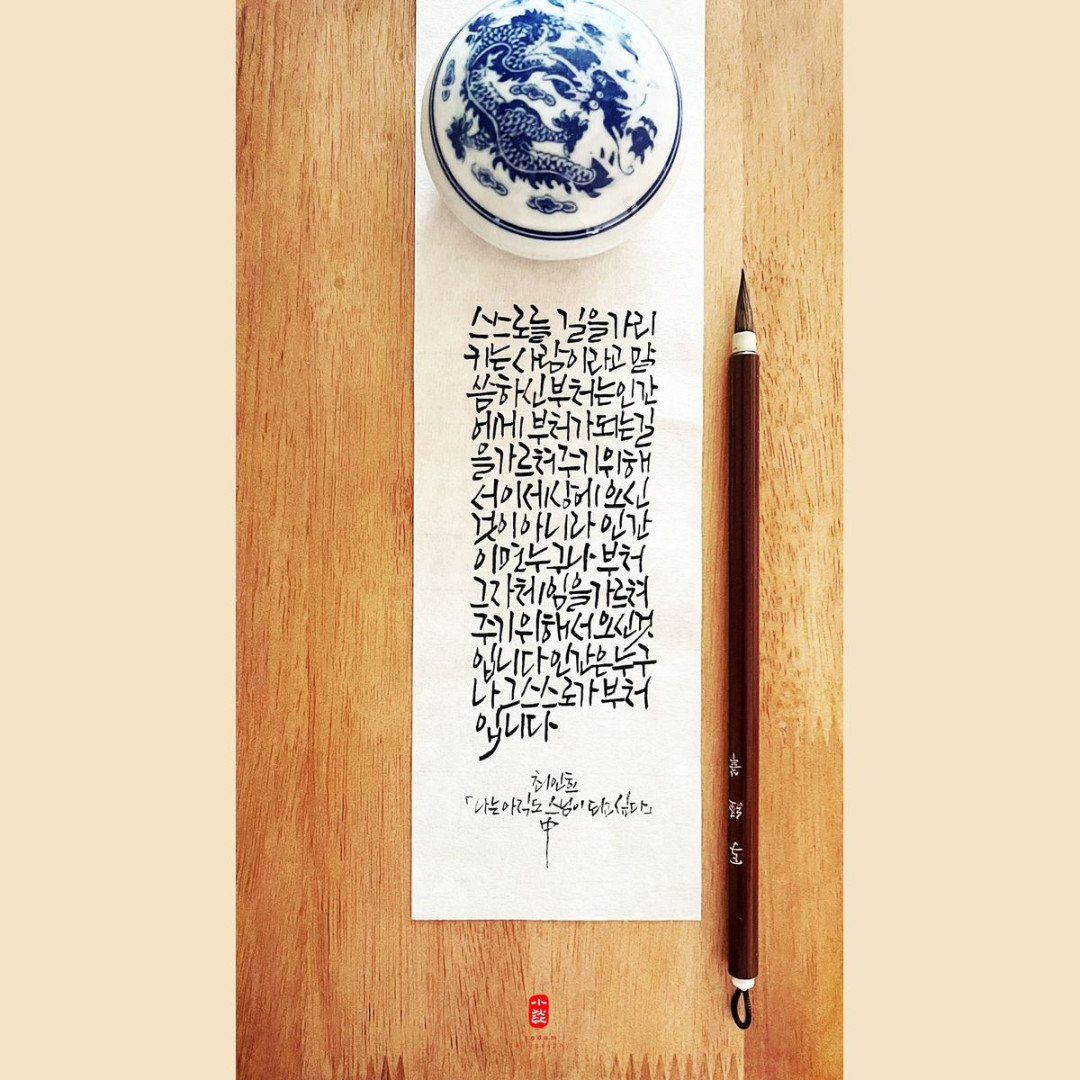 스스로를 길을가리
키는사람이라고 말
씀하신부처는인간
에게 부처가되는길
을가르쳐주기위해
서이세상에오신
것이아니라 인간
이면누구나 부처
그자체임을가르쳐
주기위해서오신것
입니다 인간은누구
나그스스로가부처
입니다.
최인호
「나는아직도 스님이 되고싶다」
中